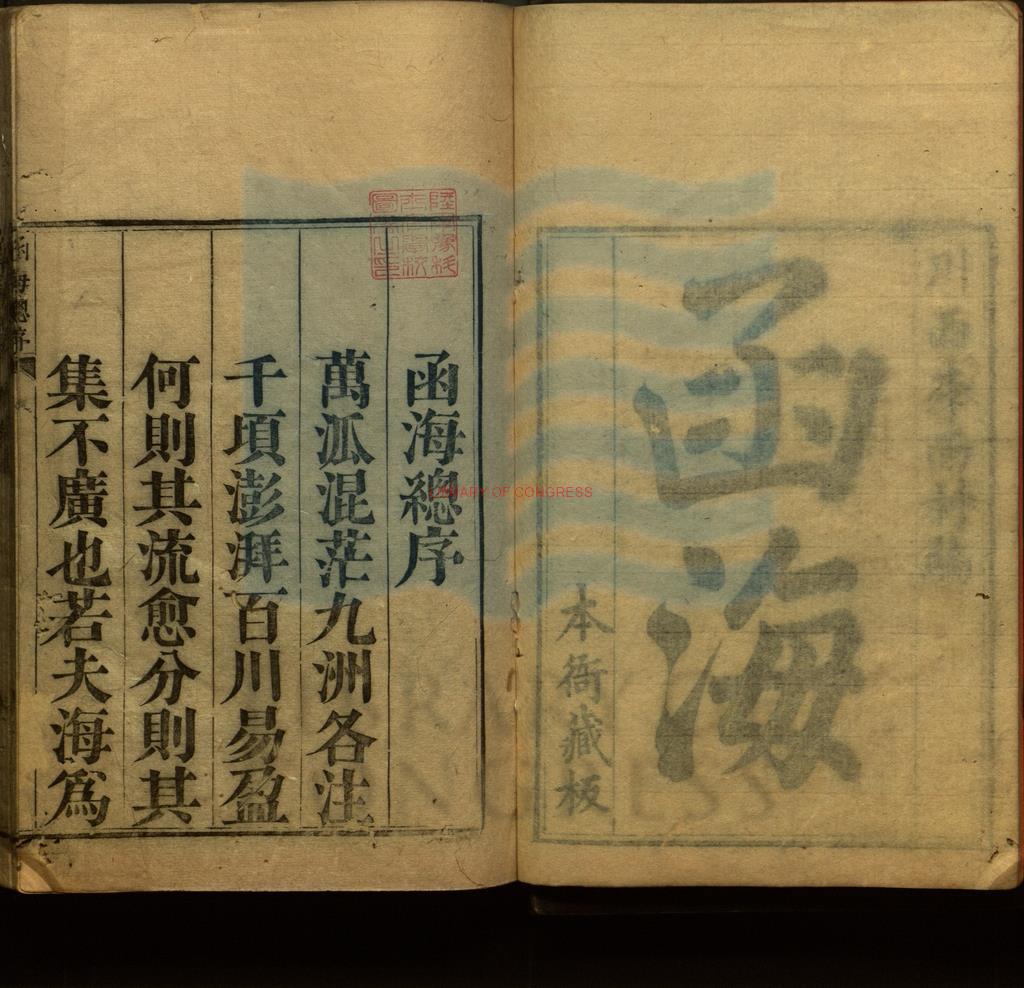 川西李雨村編
函海
本衙藏板
函海總序
萬派混茫九洲各注
千頃澎湃百川易盈
何則其流愈分則其
集不廣也若夫海爲
函海總序
LIBRARY OF CONGRESS